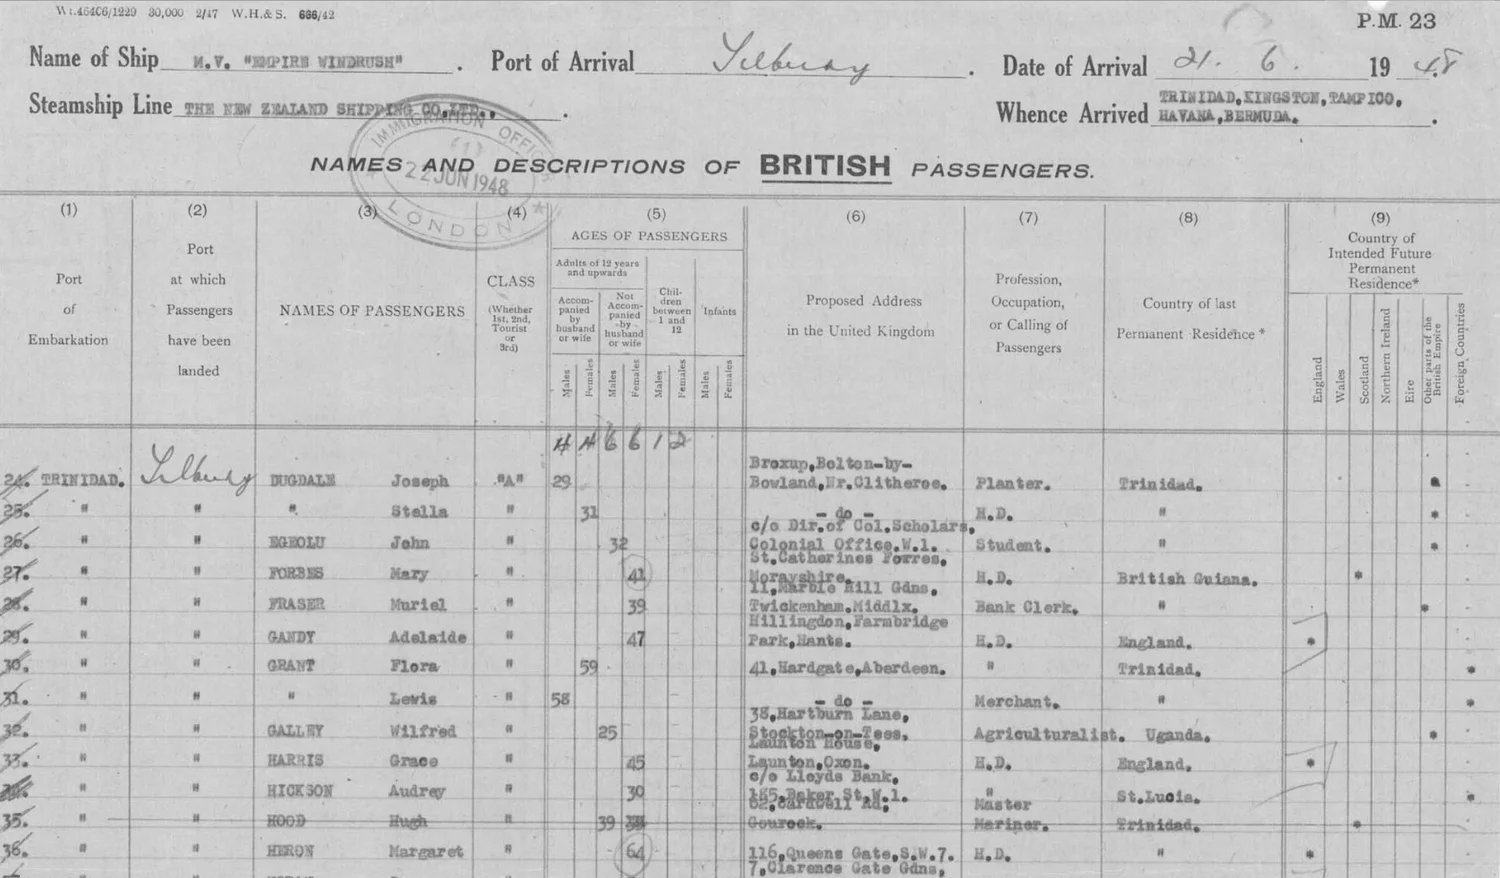 Wt.46406/1229 30,000 2/47 W.H.& S. 666/42
P.M. 23
Name of Ship M.V. "EMPIRE WINDRUSH". Port of Arrival Tilbury. Date of Arrival 21. 6. 1948
Steamship Line THE NEW ZEALAND SHIPPING CO.LTD., . Whence Arrived TRINIDAD,KINGSTON,TAMPICO,
HAVANA,BERMUDA.
IMMIGRATION OFFICER
(1)
22 JUN 1948
LONDON
NAMES AND DESCRIPTIONS OF BRITISH PASSENGERS.
(1) (2) (3) (4) (5) (6) (7) (8) (9)
Port
of
Embarkation
Port
at which
Passengers
have been
landed
NAMES OF PASSENGERS
CLASS
(Whether
1st, 2nd,
Tourist
or
3rd)
AGES OF PASSENGERS
Adults of 12 years
and upwards
Accom-
panied
by
husband
or wife
Not
Accom-
panied
by
husband
or wife
Chil-
dren
between
1 and
12
Infants
Males Females Males Females Males Females Males Females
Proposed Address
in the United Kingdom
Profession,
Occupation,
or Calling of
Passengers
Country of last
Permanent Residence*
Country of
Intended Future
Permanent
Residence*
England
Wales
Scotland
Northern Ireland
Eire
Other parts of the
British Empire
Foreign Countries
6 6 1 2
Broxup,Bolton-by-
24. TRINIDAD. Tilbury DUGDALE Joseph "A" 29 Bowland,Nr.Clitheroe. Planter. Trinidad. *
25. " " " Stella " 31 - do - H.D. " *
c/o Dir.of Col.Scholars,
26. " " EGEOLU John " 32 Colonial Office.W.1. Student. " *
St.Catherines Forres,
27. " " FORBES Mary " 41 Morayshire. H.D. British Guiana. *
11,Marble Hill Gdns,
28. " " FRASER Muriel " 39 Twickenham.Middlx. Bank Clerk. " *
Hillingdon,Farmbridge
29. " " GANDY Adelaide " 47 Park,Hants. H.D. England. *
30. " " GRANT Flora " 59 41,Hardgate,Aberdeen. " Trinidad. *
31. " " " Lewis " 58 - do - Merchant. " *
38,Hartburn Lane,
32. " " GALLEY Wilfred " 25 Stockton-on-Tees. Agriculturalist. Uganda. *
Launton House,
33. " " HARRIS Grace " 45 Launton,Oxon. H.D. England. *
c/o Lloyds Bank,
34. " " HICKSON Audrey " 30 185,Baker St.W.1. " St.Lucia. *
62,Cardwell Rd, Master
35. " " HOOD Hugh " 39 Gourock. Mariner. Trinidad. *
36. " " HERON Margaret " 64 116,Queens Gate,S.W.7. H.D. " *
7,Clarence Gate Gdns,